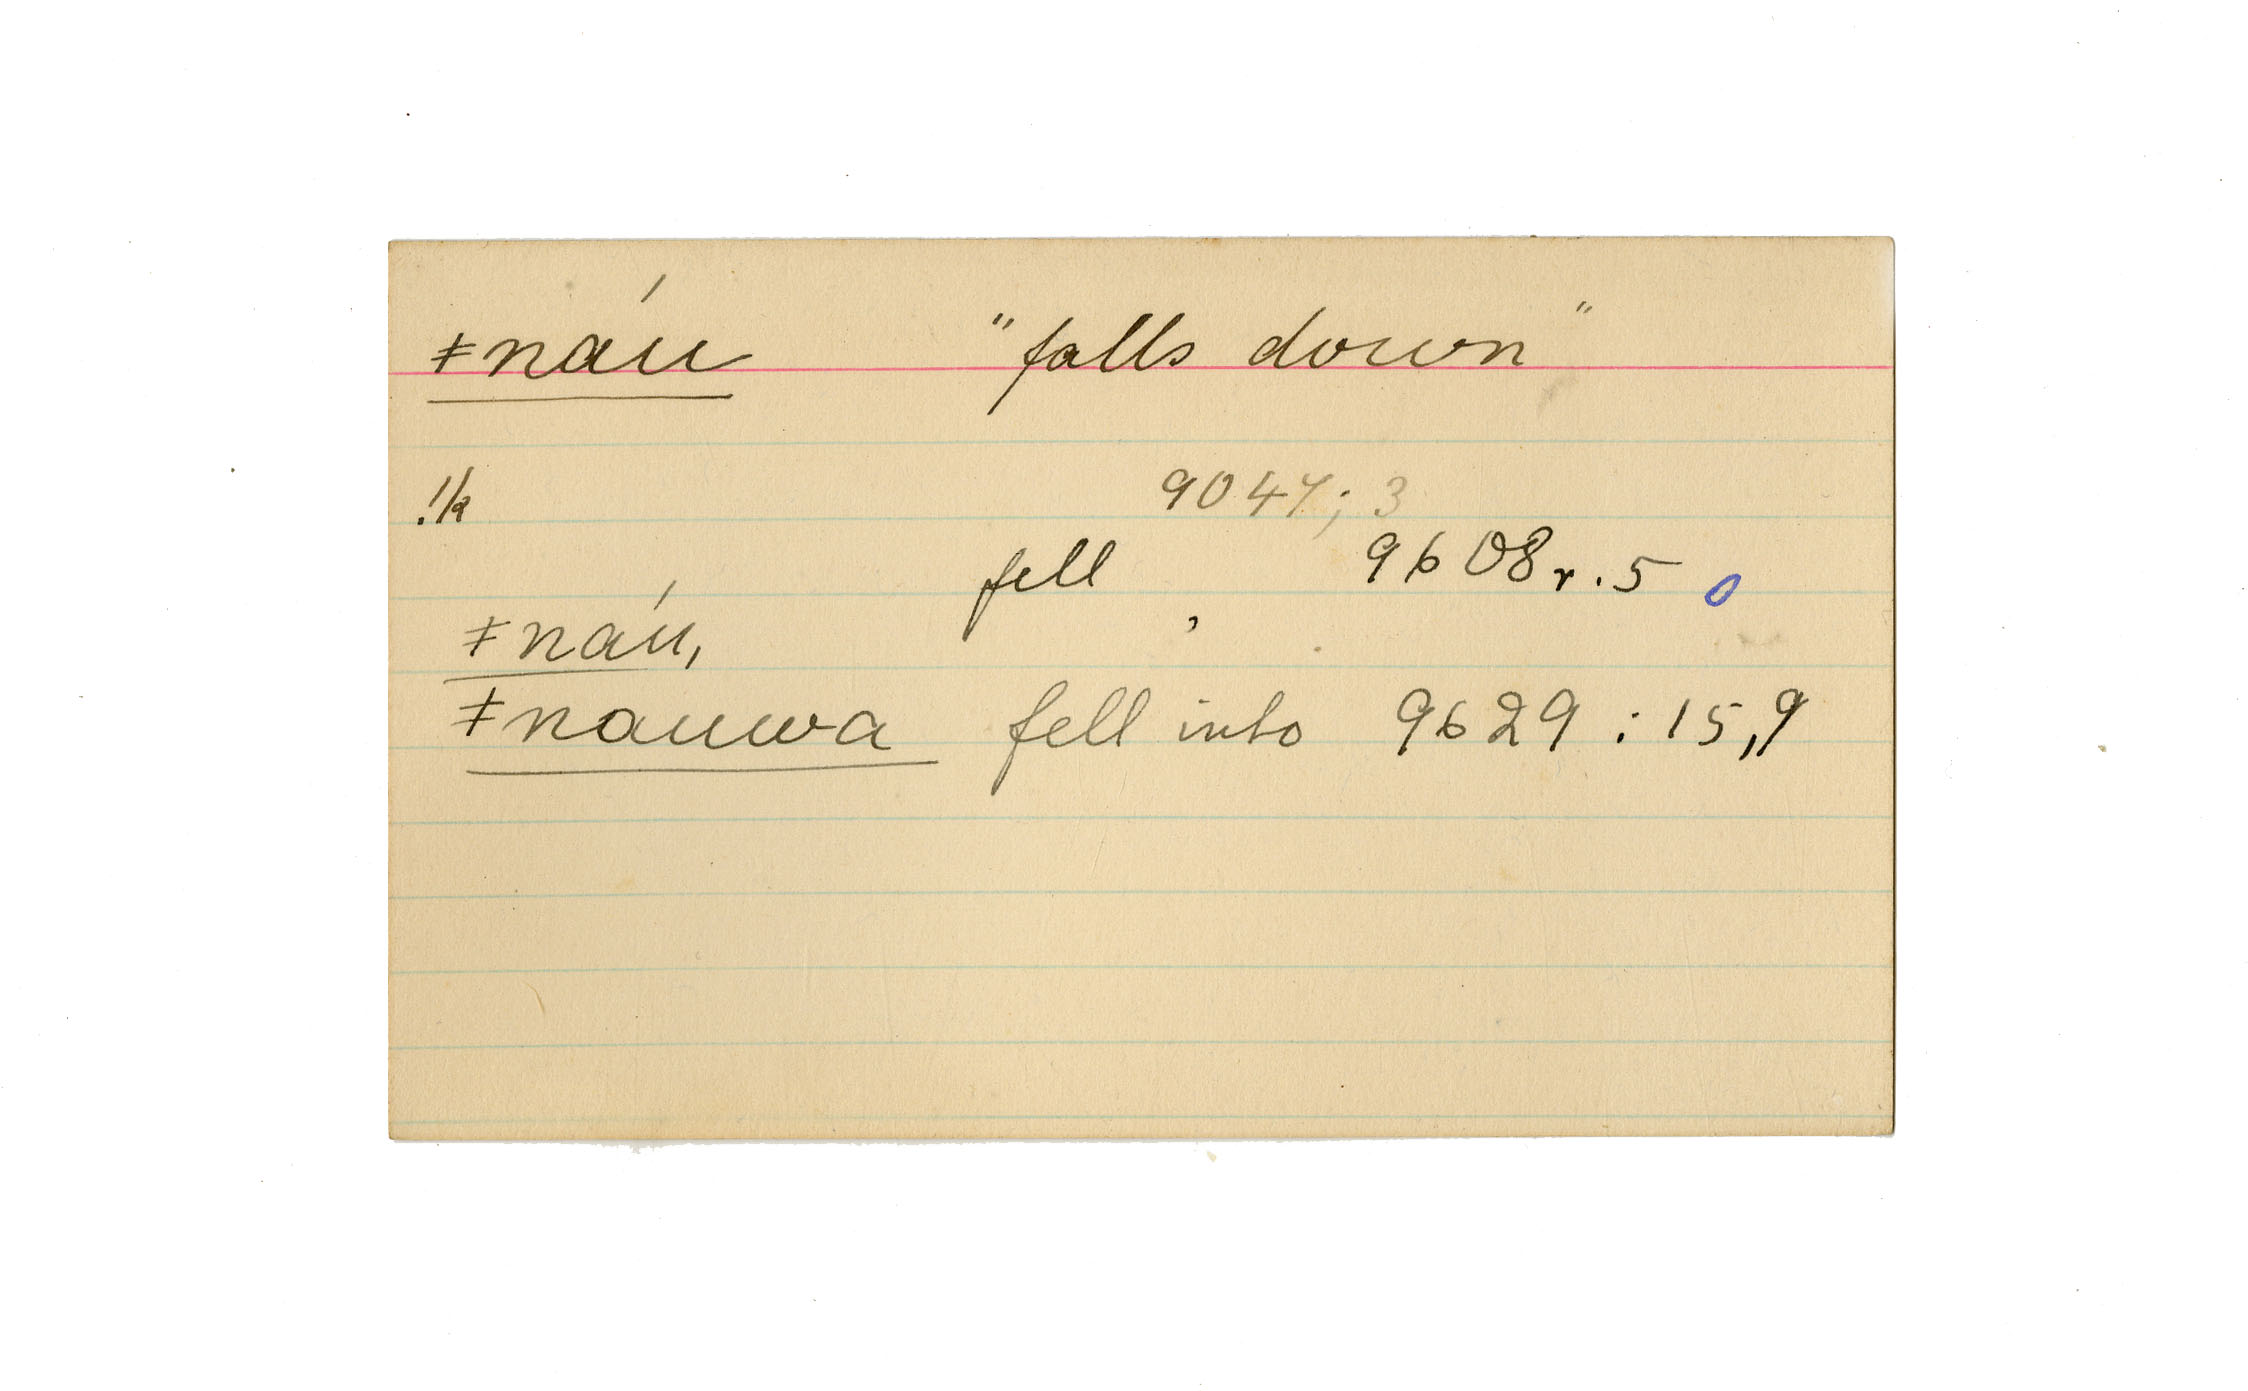 ǂnáu "falls down"
!k 9047; 3
fell 9608r.5 0
ǂnáu,
ǂnauwa fell into 9629 : 15,9